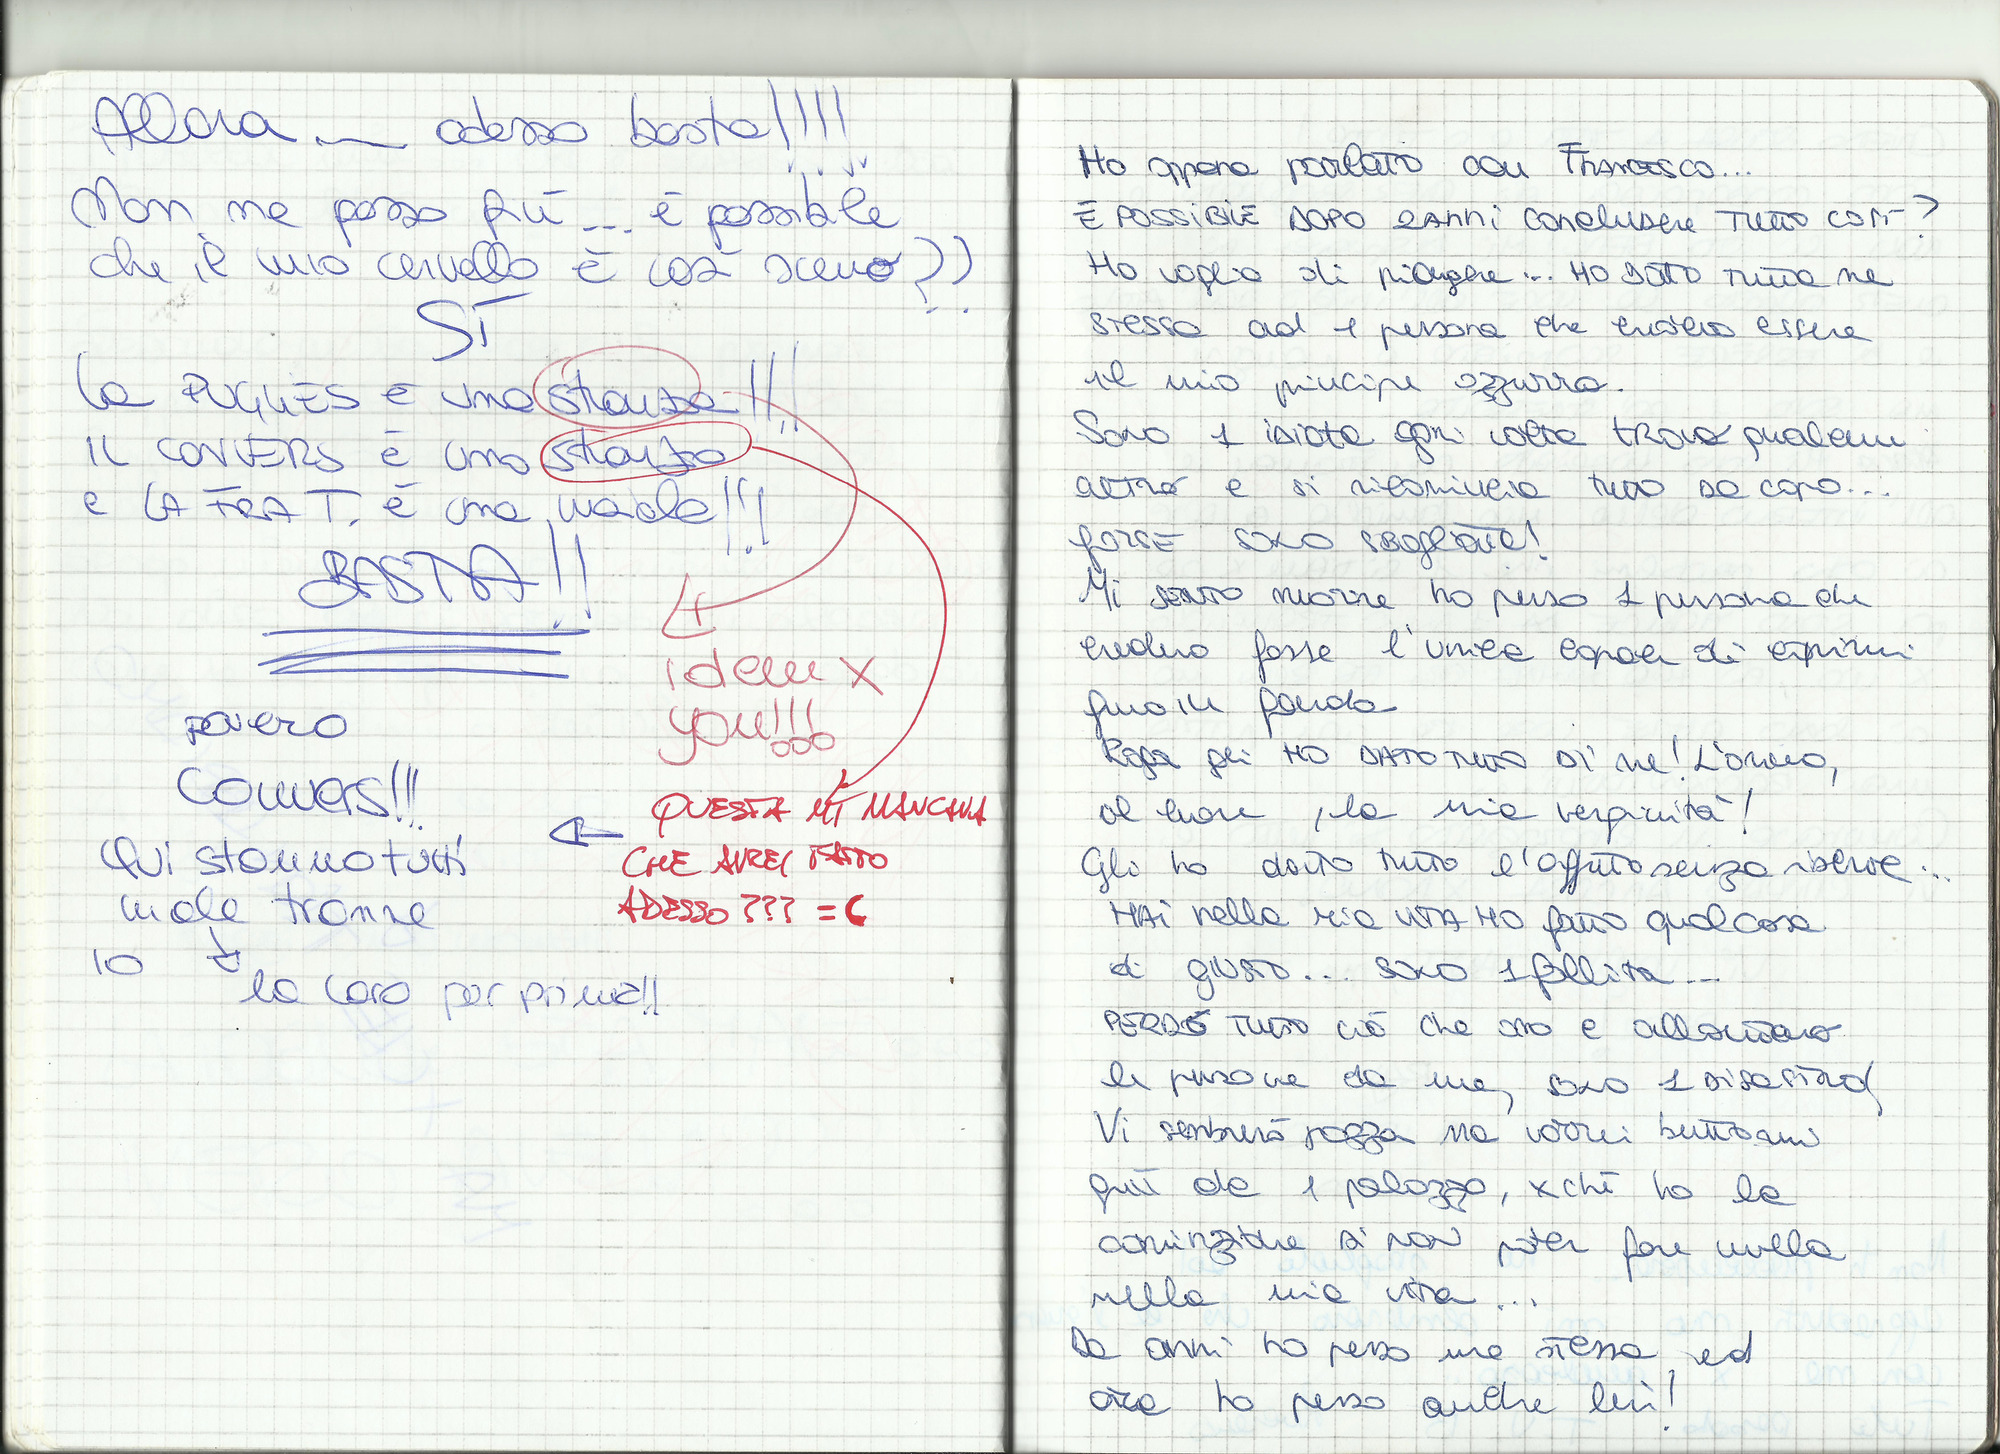 Allora... adesso basta!!!!
Non ne posso più... è possibile
che il mio cervello è così scemo??
SÌ
la PUGLIES è una stronza!!!
IL CONVERS è uno stronzo
e LA FRA T. è una merda!!!
BASTA!!
povero
Convers!!!
Qui stanno tutti
male tranne
IO
la Caro per prima!!
idem x
you!!!
QUESTA MI MANCAVA
CHE AVREI FATTO
ADESSO??? =(
Ho appena parlato con Francesco...
È POSSIBILE DOPO 2 ANNI CONCLUDERE TUTTO COSÌ?
Ho voglia di piangere... HO DATO TUTTA ME
stessa ad 1 persona che credevo essere
il mio principe azzurro.
Sono 1 idiota ogni volta trova qualcun
altra e si ricomincia tutto da capo...
forse sono sbagliata!
Mi sento morire ho perso 1 persona che
credevo fosse l'unica capace di capirmi
fino in fondo
Raga gli HO DATO TUTTO DI ME! L'anima,
il cuore, la mia verginità!
Gli ho dato tutto l'affetto senza riserve...
MAI nella mia VITA HO fatto qualcosa
di giusto... sono 1 fallita...
PERDO TUTTO ciò che amo e allontano
le persone da me, sono 1 disastro!
Vi sembrerò pazza ma vorrei buttarmi
giù da 1 palazzo, xchè ho la
convinzione di non poter fare nulla
nella mia vita...
Da anni ho perso me stessa ed
ora ho perso anche lui!